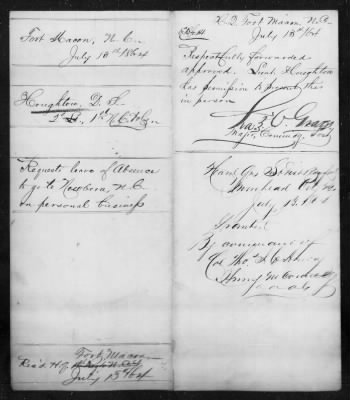 Fort Macon, N.C.
July 13th 1864
Houghton, D. F.
2d Lt., 1st N.C. Vol.
Requests leave of Absence
to go to Newbern, N.C.
on personal business
Fort Macon
Rec'd. H.Q.
July 13th 64
H. Q. Fort Macon N.C.
July 13th 64
Respectfully forwarded
approved. Lieut Houghton
has permission to present this
in person
Major, Comdg. Fort
Head Qrs
Morehead City N.C.
July 13. 1864
Granted
By command of
Col Thos. J. C. Amory